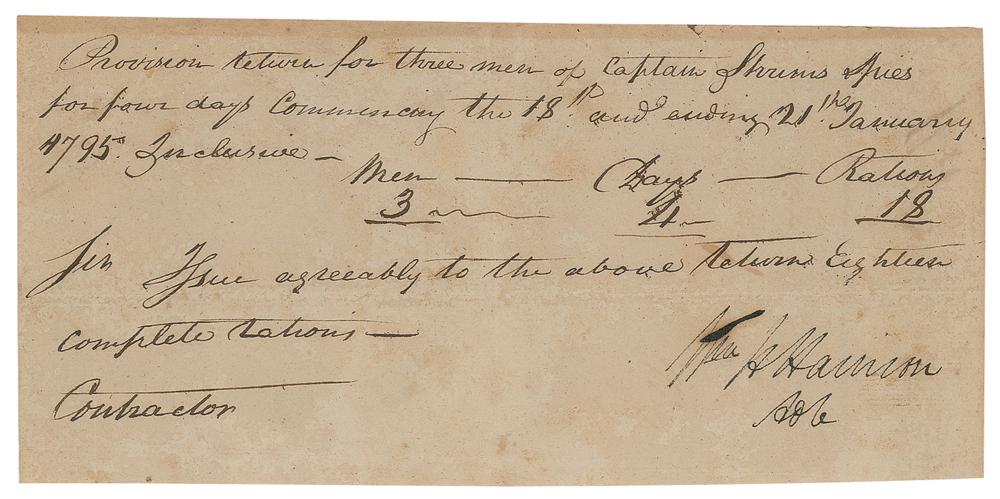 Provision return for three men of Captain Shrims Spies
for four days Commencing the 18th and ending 21th January
1795 Inclusive —
Men — Days — Rations
3 4 18
Sir Issue agreeably to the above return Eighteen
complete rations —
Wm H Harrison
Contractor
ADC